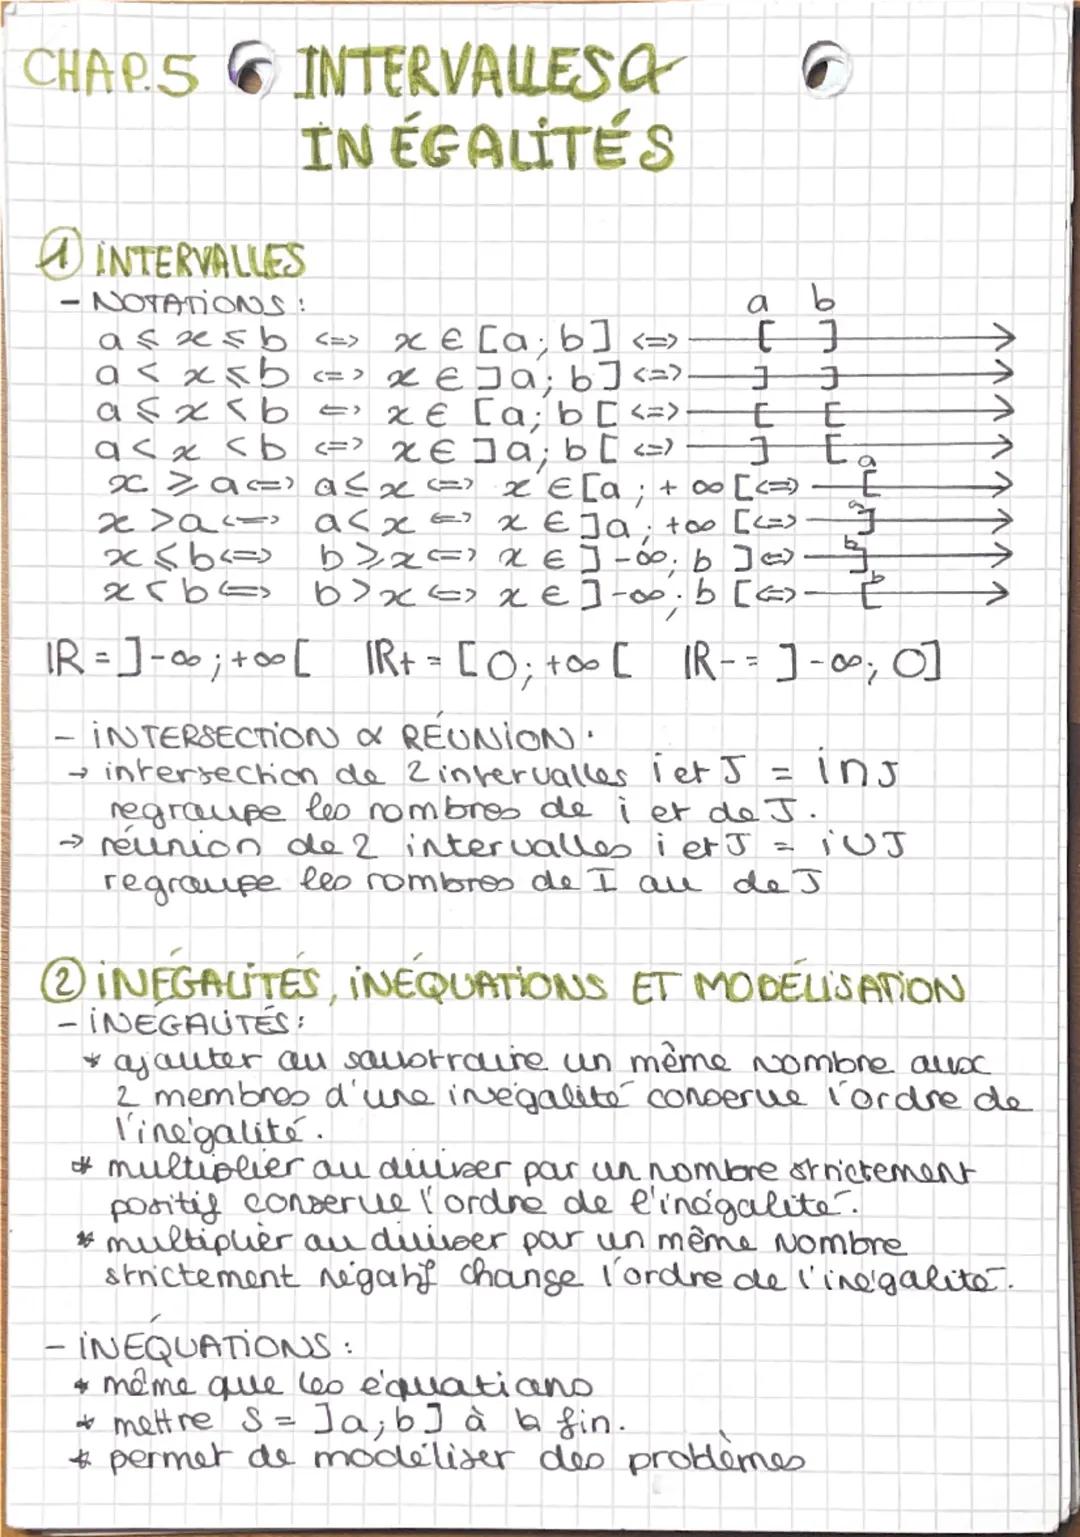 CHAP.5 INTERVALLES &
INÉGALITÉS
① INTERVALLES
- NOTATIONS :
a b
a ≤ x ≤ b <=> x ∈ [a; b] <=> [ ]
a < x ≤ b <=> x ∈ ]a; b] <=> ] ]
a ≤ x < b <=> x ∈ [a; b[ <=> [ [
a < x < b <=> x ∈ ]a; b[ <=> ] [
x ≥ a <=> a ≤ x <=> x ∈ [a ; +∞ [ <=> [ a
x > a <=> a < x <=> x ∈ ]a ; +∞ [ <=> ] a
x ≤ b <=> b ≥ x <=> x ∈ ]-∞; b ] <=> ] b
x < b <=> b > x <=> x ∈ ]-∞; b [ <=> [ b
IR = ]-∞ ; +∞ [ IR+ = [0; +∞ [ IR- = ]-∞; 0]
- INTERSECTION & RÉUNION :
→ intersection de 2 intervalles i et J = i∩J
regroupe les nombres de i et de J.
→ réunion de 2 intervalles i et J = i∪J
regroupe les nombres de I ou de J
② INÉGALITÉS, INÉQUATIONS ET MODÉLISATION
- INÉGALITÉS :
* ajouter ou soustraire un même nombre aux
2 membres d'une inégalité conserve l'ordre de
l'inégalité.
* multiplier ou diviser par un nombre strictement
positif conserve l'ordre de l'inégalité.
* multiplier ou diviser par un même nombre
strictement négatif change l'ordre de l'inégalité.
- INÉQUATIONS :
* même que les équations
* mettre S = ]a; b] à la fin.
* permet de modéliser des problèmes